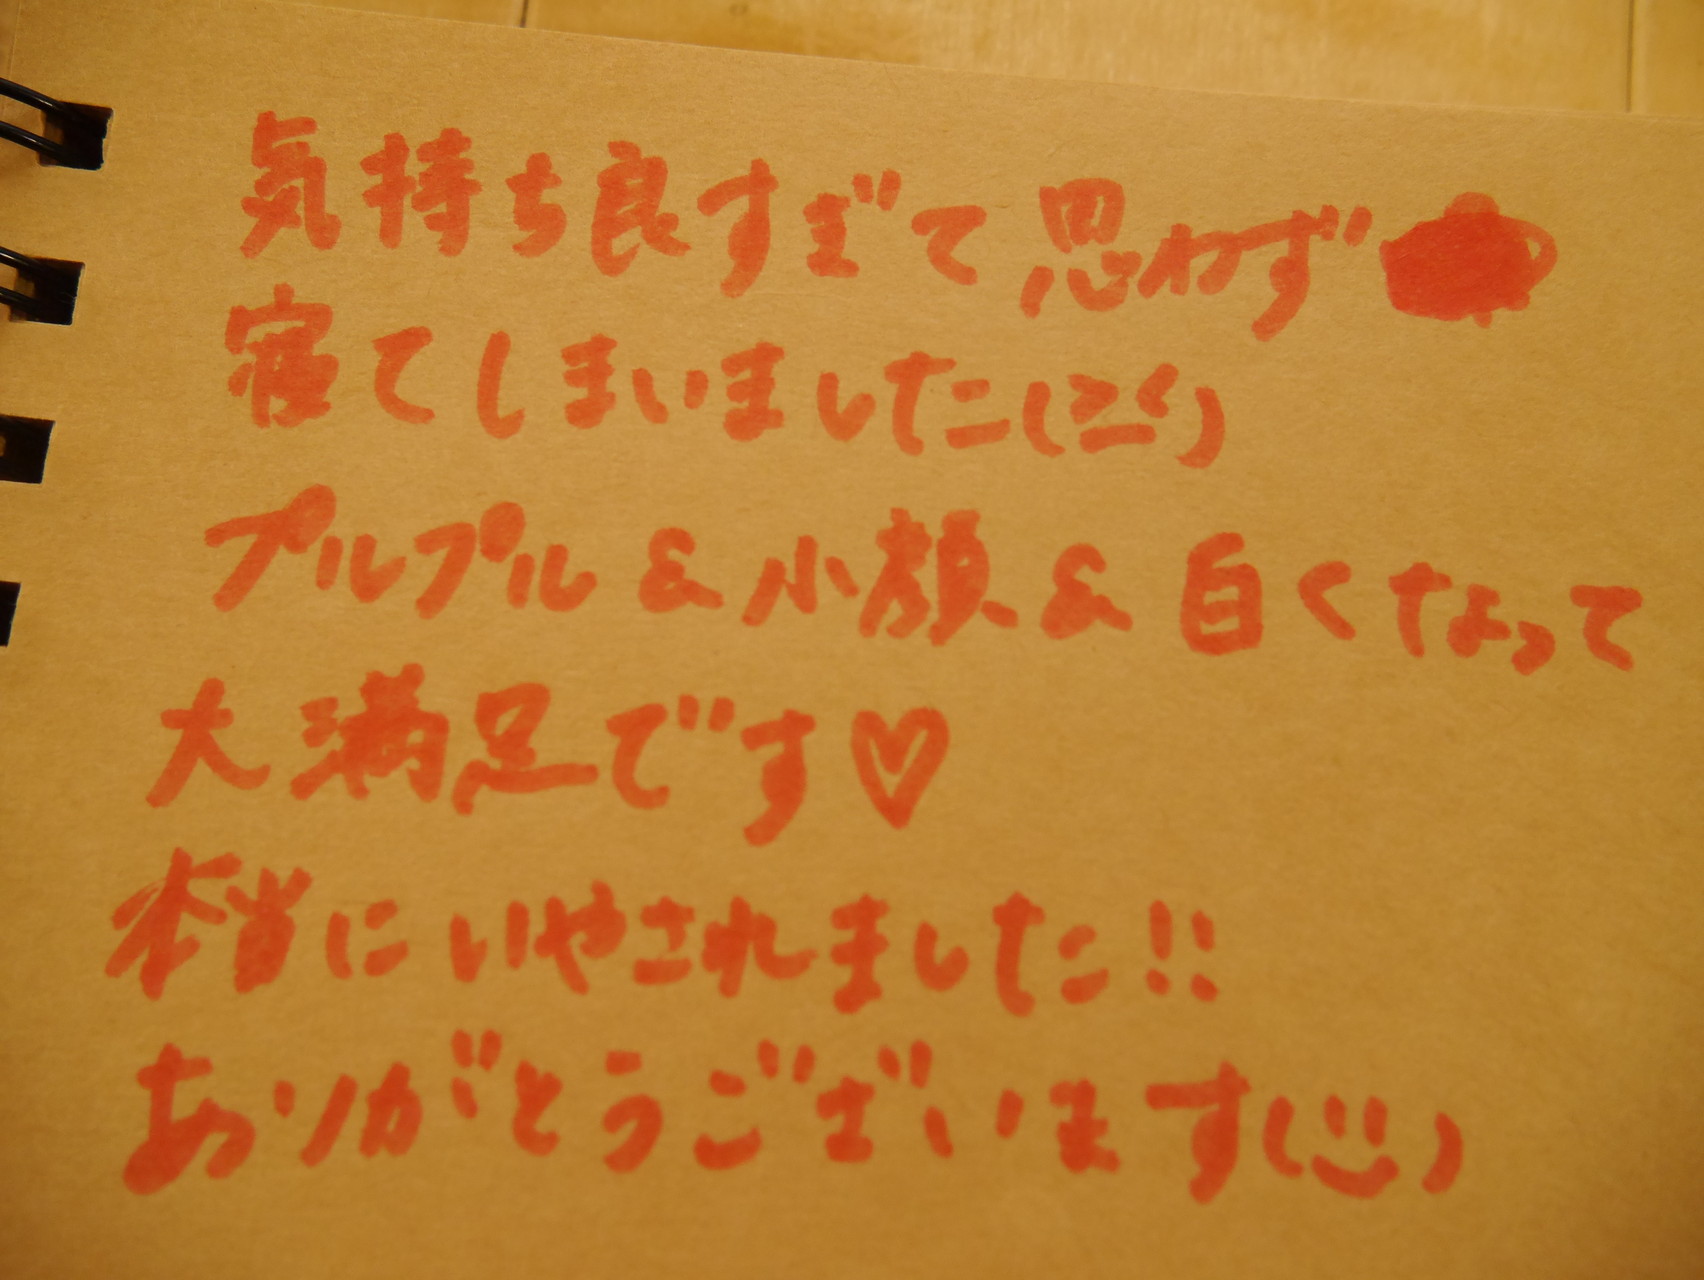 気持ち良すぎて思わず
寝てしまいました(ニニ)
プルプル&小顔&白くなって
大満足です♡
本当にいやされました!!
ありがとうございます(:))